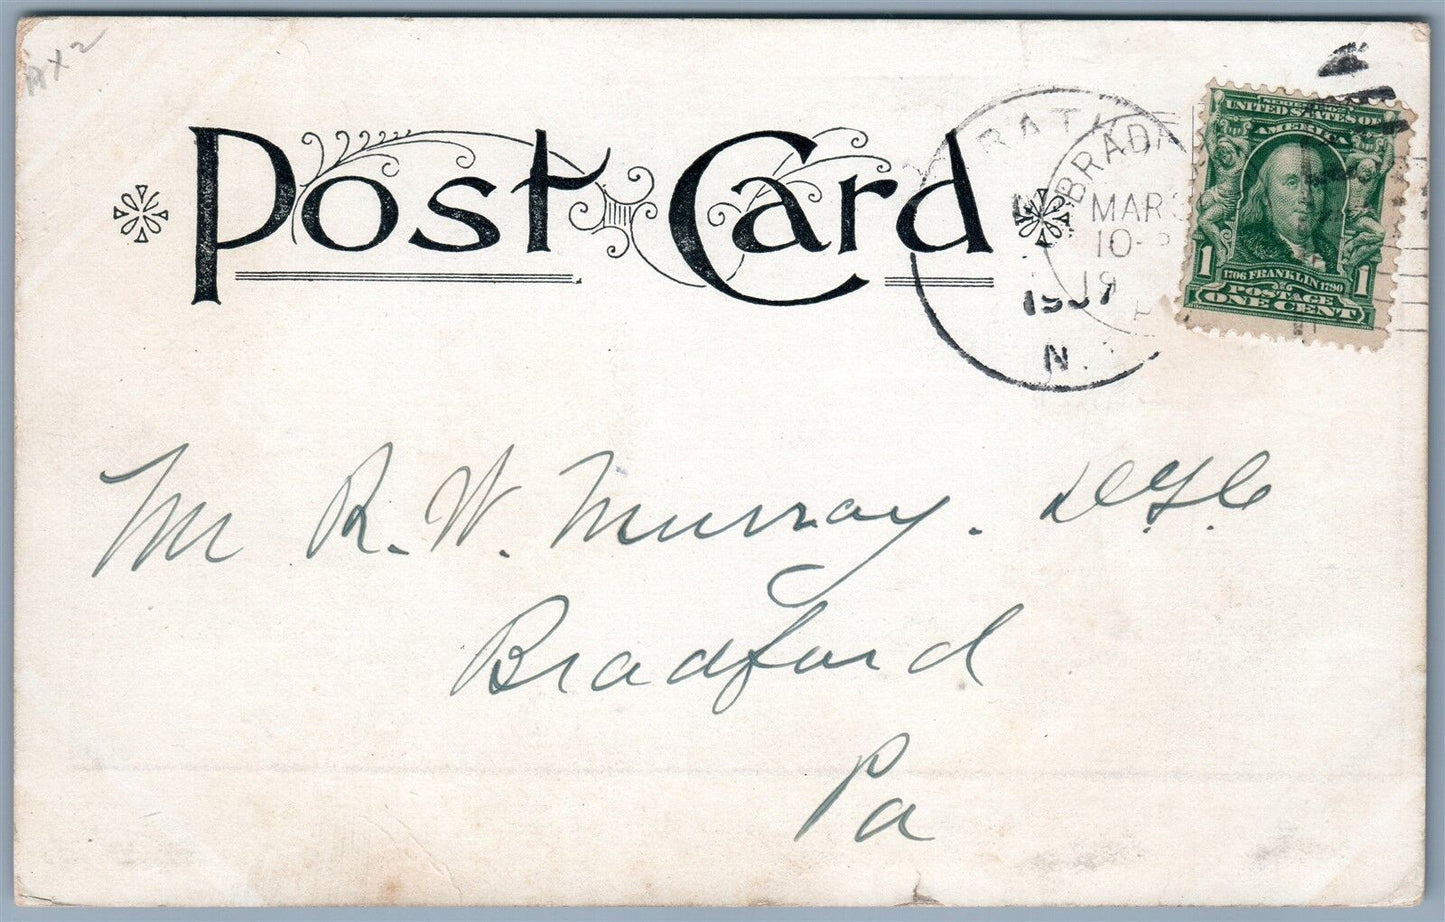 AX2
Post Card
BRAD
MAR
10-
19
1907
N.
SERIES 1902
UNITED STATES OF
AMERICA
1 1
1706 FRANKLIN 1790
POSTAGE
ONE CENT
Mr R. W. Murray.
Bradford
Pa